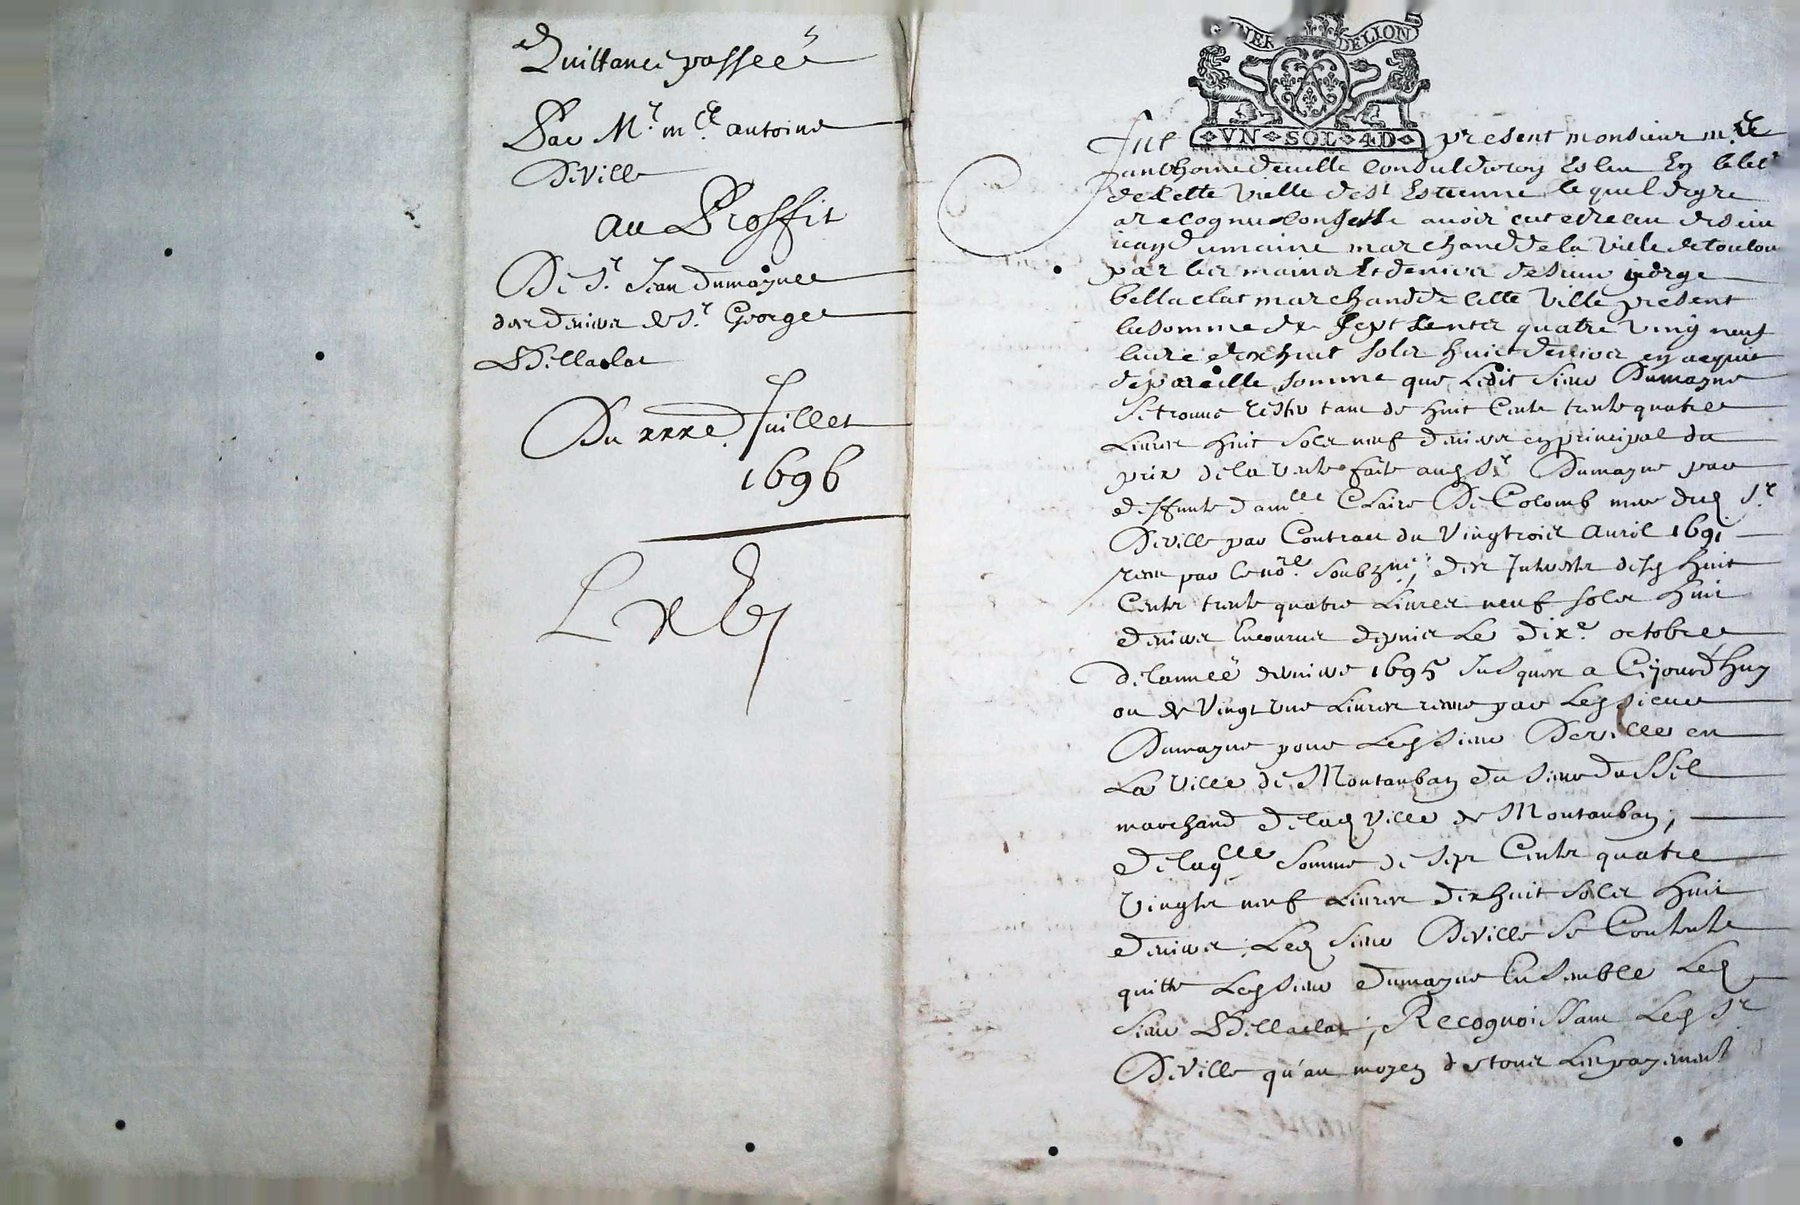 Quittance passeé
Par Mr. me. antoine
DeVille
au Proffit
De Sr. Jean Dumayne
des deniers de Sr. George
Bellaclat
Du xxxe. Juillet
1696
GNER DE LION
VN SOL 4D
Fut present monsieur me.
anthoine deville Conseul du roy Esleu En
de Cette ville de St Estienne lequel de gre
a recognu Confesse avoir eut et receu du sieur
jean dumaine marchand de la ville de
par les mains Et deniers de sieur george
bellaclat marchand de Cette Ville present
la somme de sept Cents quatre ving neuf
livre dixhuit sols huict deniers en acquit
de pareille somme que Ledit Sieur Dumayne
se trouve de huit Cents trente quatre
Livres huit sols neuf deniers en principal du
prix de la vente faite aud Sr Dumayne par
deffunte damlle Claire De Colomb mere dud Sr
Deville par Contract du Vingtrois Avril 1691
receu par le nore. soubzne, et des Interests desd huit
Cents trente quatre Livres neuf sols huit
deniers Encourus depuis Le dixe. octobre
de lanneé derniere 1695 Jusques a Cejourdhuy
ou de vingt une Livres receue par Led sieur
Dumayne pour Led Sieur Deville en
La Ville de Montauban du sieur Dussil
marchand de lad Ville de Montauban,
De laqlle somme de sept Cents quatre
Vingts neuf Livres dixhuit sols huit
deniers Led sieur Deville se Contente
quitte Led sieur dumayne Ensemble Led
sieur Bellaclat, Recognoissant Led Sr
DeVille qu'au moyen de tous Les payement